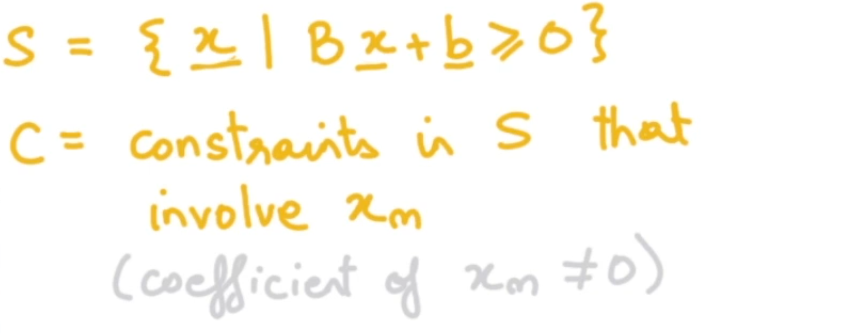 S = { x | B x + b ⩾ 0 }
C = constraints in S that
involve xₘ
(coefficient of xₘ ≠ 0)